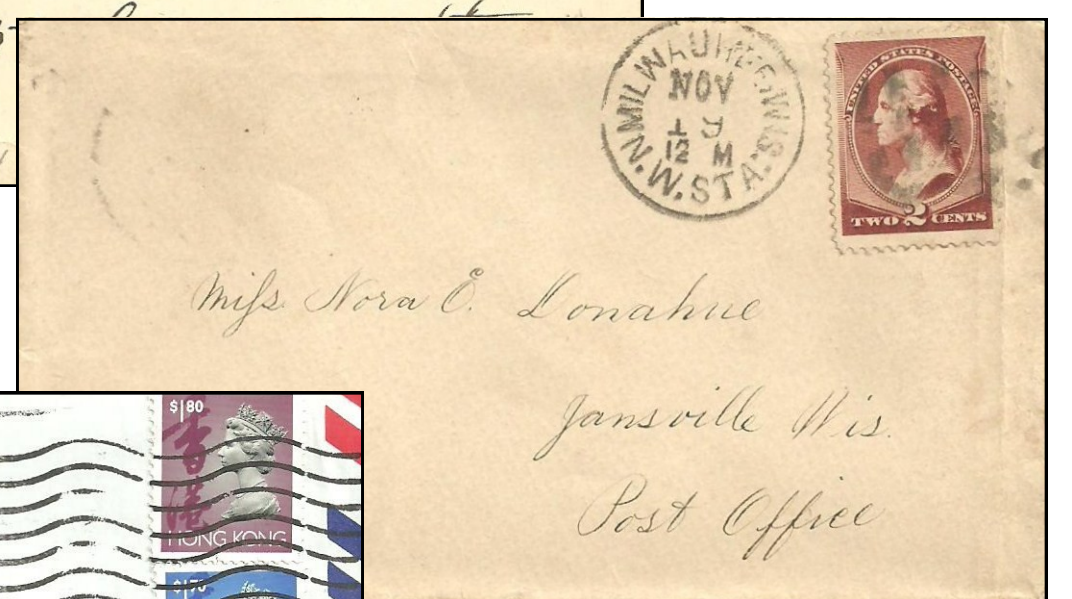 MILWAUKEE, WIS.
NOV
19
12 M
N.W. STA.
UNITED STATES POSTAGE
TWO 2 CENTS
Miss Nora E. Donahue
Jansville Wis.
Post Office
$1.80
香港
HONG KONG